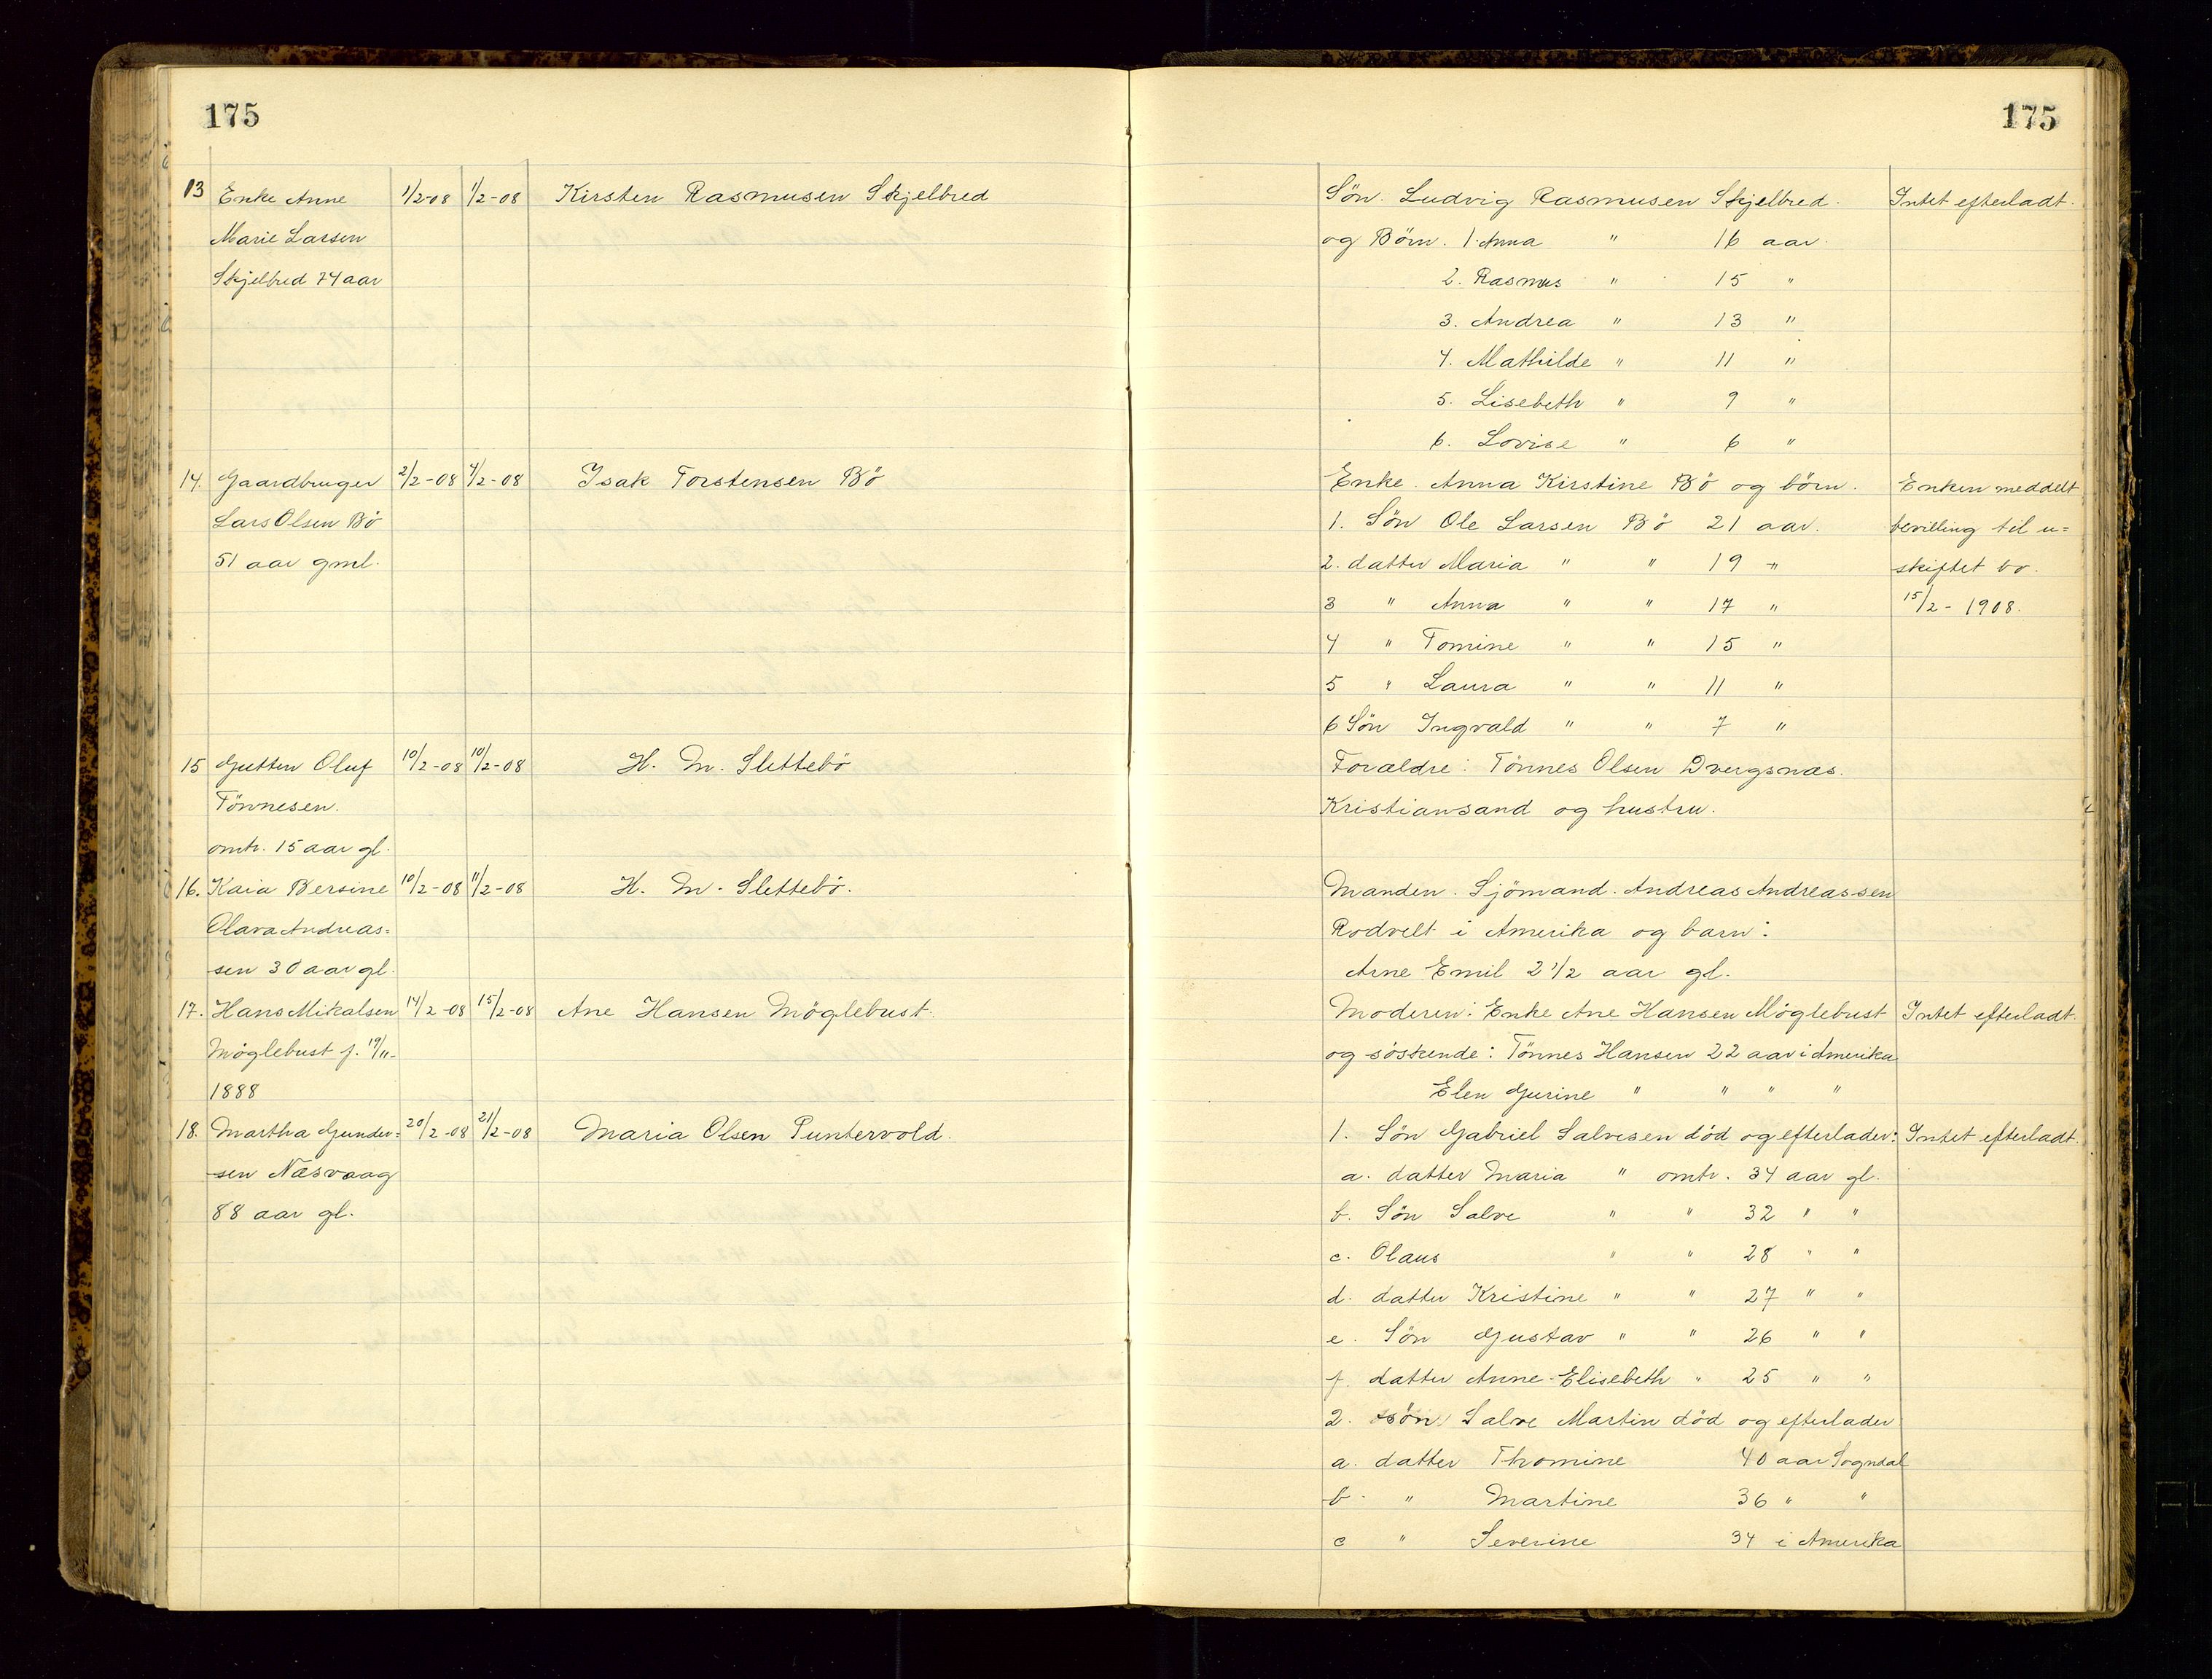 175
13 Enke Anne 1/2-08 1/2-08 Kirsten Rasmusen Skjelbred
Marie Larsen
Skjelbred 74 aar
14. Gaardbruger 2/2-08 4/2-08 Isak Torstensen Bö
Lars Olsen Bö
51 aar gml.
15 Gutten Oluf 10/2-08 10/2-08 H. M. Slettebö
Tönnesen.
omtr. 15 aar gl.
16. Kaia Bersine 10/2-08 11/2-08 H. M. Slettebö.
Olava Andreas=
sen 30 aar gl.
17. Hans Mikalsen 14/2-08 15/2-08 Ane Hansen Möglebust.
Möglebust f. 19/11-
1888
18. Martha Gunder= 20/2-08 21/2-08 Maria Olsen Puntervold.
sen Næsvaag
88 aar gl.
175
Sön. Ludvig Rasmusen Skjelbred. Intet efterladt.
og Börn. 1. Anna " 16 aar.
2. Rasmus " 15 "
3. Andrea " 13 "
4. Mathilde " 11 "
5. Lisebeth " 9 "
6. Lovise " 6 "
Enke. Anna Kirstine Bö og börn. Enken meddelt
1. Sön Ole Larsen Bö 21 aar. bevilling til u=
2. datter Maria " " 19 " skiftet bo.
3 " Anna " " 17 " 15/2-1908.
4 " Tomine " " 15 "
5 " Laura " " 11 "
6 Sön Ingvald " " 7 "
Forældre: Tönnes Olsen Dvergsnæs.
Kristiansand og hustru.
Manden. Sjömand. Andreas Andreassen
Rodvelt i Amerika og barn:
Arne Emil 2 1/2 aar gl.
Moderen: Enke Ane Hansen Möglebust Intet efterladt.
og söskende: Tönnes Hansen 22 aar i Amerika
Elen Gurine " " " "
1. Sön Gabriel Salvesen död og efterlader: Intet efterladt.
a. datter Maria " omtr. 34 aar gl.
b. Sön Salve " " 32 " "
c. Olaus " " 28 " "
d. datter Kristine " " 27 " "
e. Sön Gustav " " 26 " "
f. datter Anne-Elisebeth " 25 " "
2. sön Salve Martin död og efterlader
a. datter Thomine 40 aar Sogndal
b. " Martine 36 " "
c " Severine 34 i Amerika